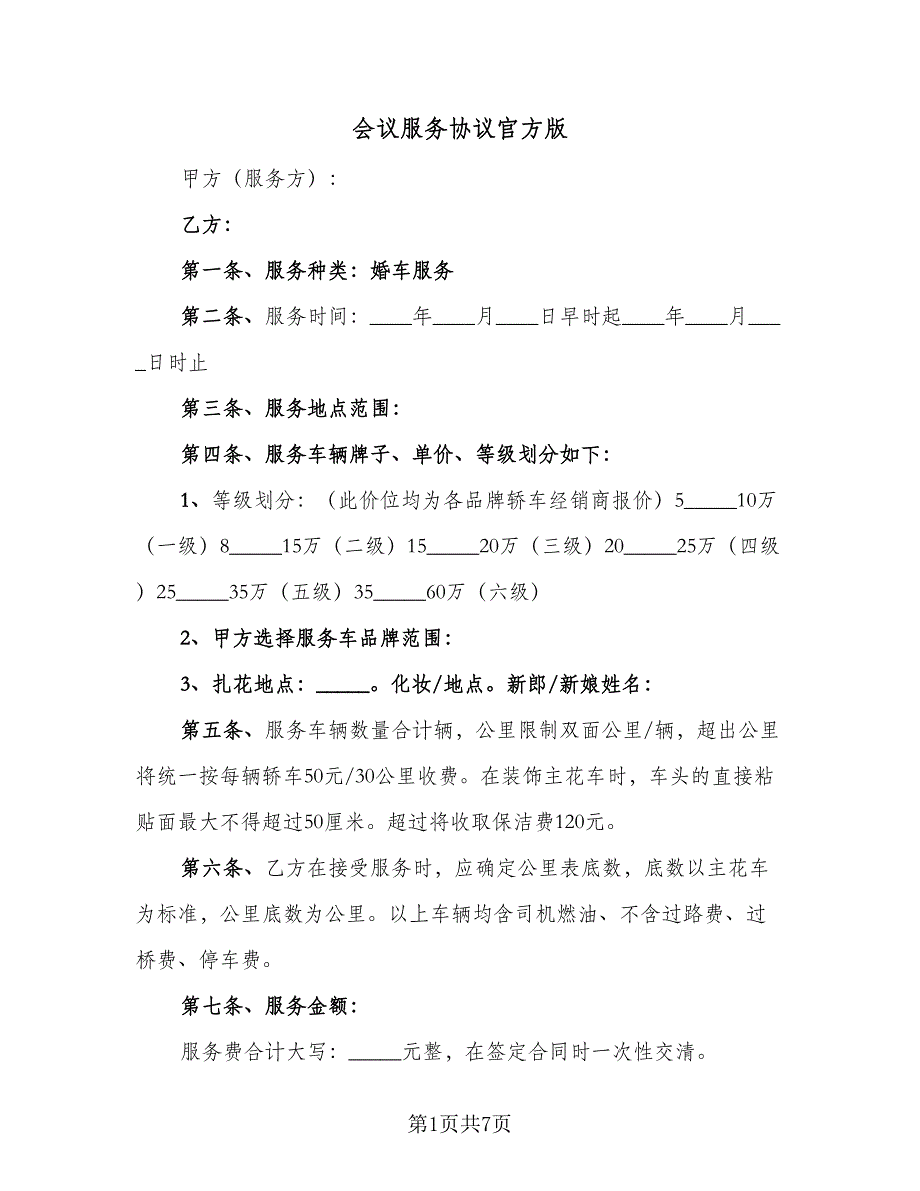 会议服务协议官方版
甲方（服务方）：
乙方：
第一条、服务种类：婚车服务
第二条、服务时间：____年____月____日早时起____年____月___
_日时止
第三条、服务地点范围：
第四条、服务车辆牌子、单价、等级划分如下：
1、等级划分：（此价位均为各品牌轿车经销商报价）5_____10万
（一级）8_____15万（二级）15_____20万（三级）20_____25万（四级
）25_____35万（五级）35_____60万（六级）
2、甲方选择服务车品牌范围：
3、扎花地点：_____。化妆/地点。新郎/新娘姓名：
第五条、服务车辆数量合计辆，公里限制双面公里/辆，超出公里
将统一按每辆轿车50元/30公里收费。在装饰主花车时，车头的直接粘
贴面最大不得超过50厘米。超过将收取保洁费120元。
第六条、乙方在接受服务时，应确定公里表底数，底数以主花车
为标准，公里底数为公里。以上车辆均含司机燃油、不含过路费、过
桥费、停车费。
第七条、服务金额：
服务费合计大写：_____元整，在签定合同时一次性交清。
第1页共7页